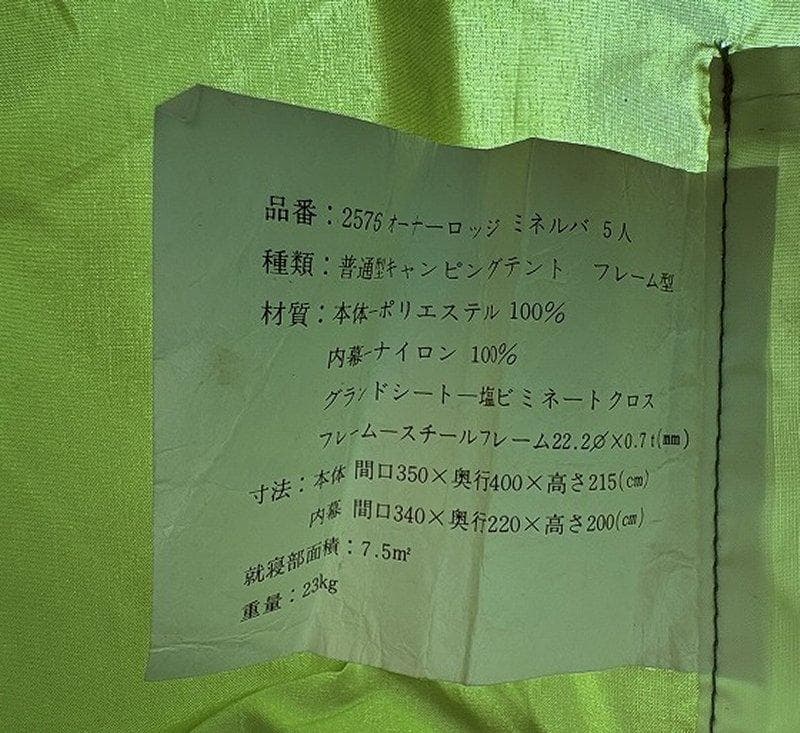 品番：2576 オーナーロッジ ミネルバ 5人
種類：普通型キャンピングテント フレーム型
材質：本体-ポリエステル 100%
内幕-ナイロン 100%
グランドシート一塩ビミネートクロス
フレームースチールフレーム22.2∅×0.7t(mm)
寸法：本体 間口350×奥行400×高さ215(cm)
内幕 間口340×奥行220×高さ200(cm)
就寝部面積：7.5m²
重量：23kg